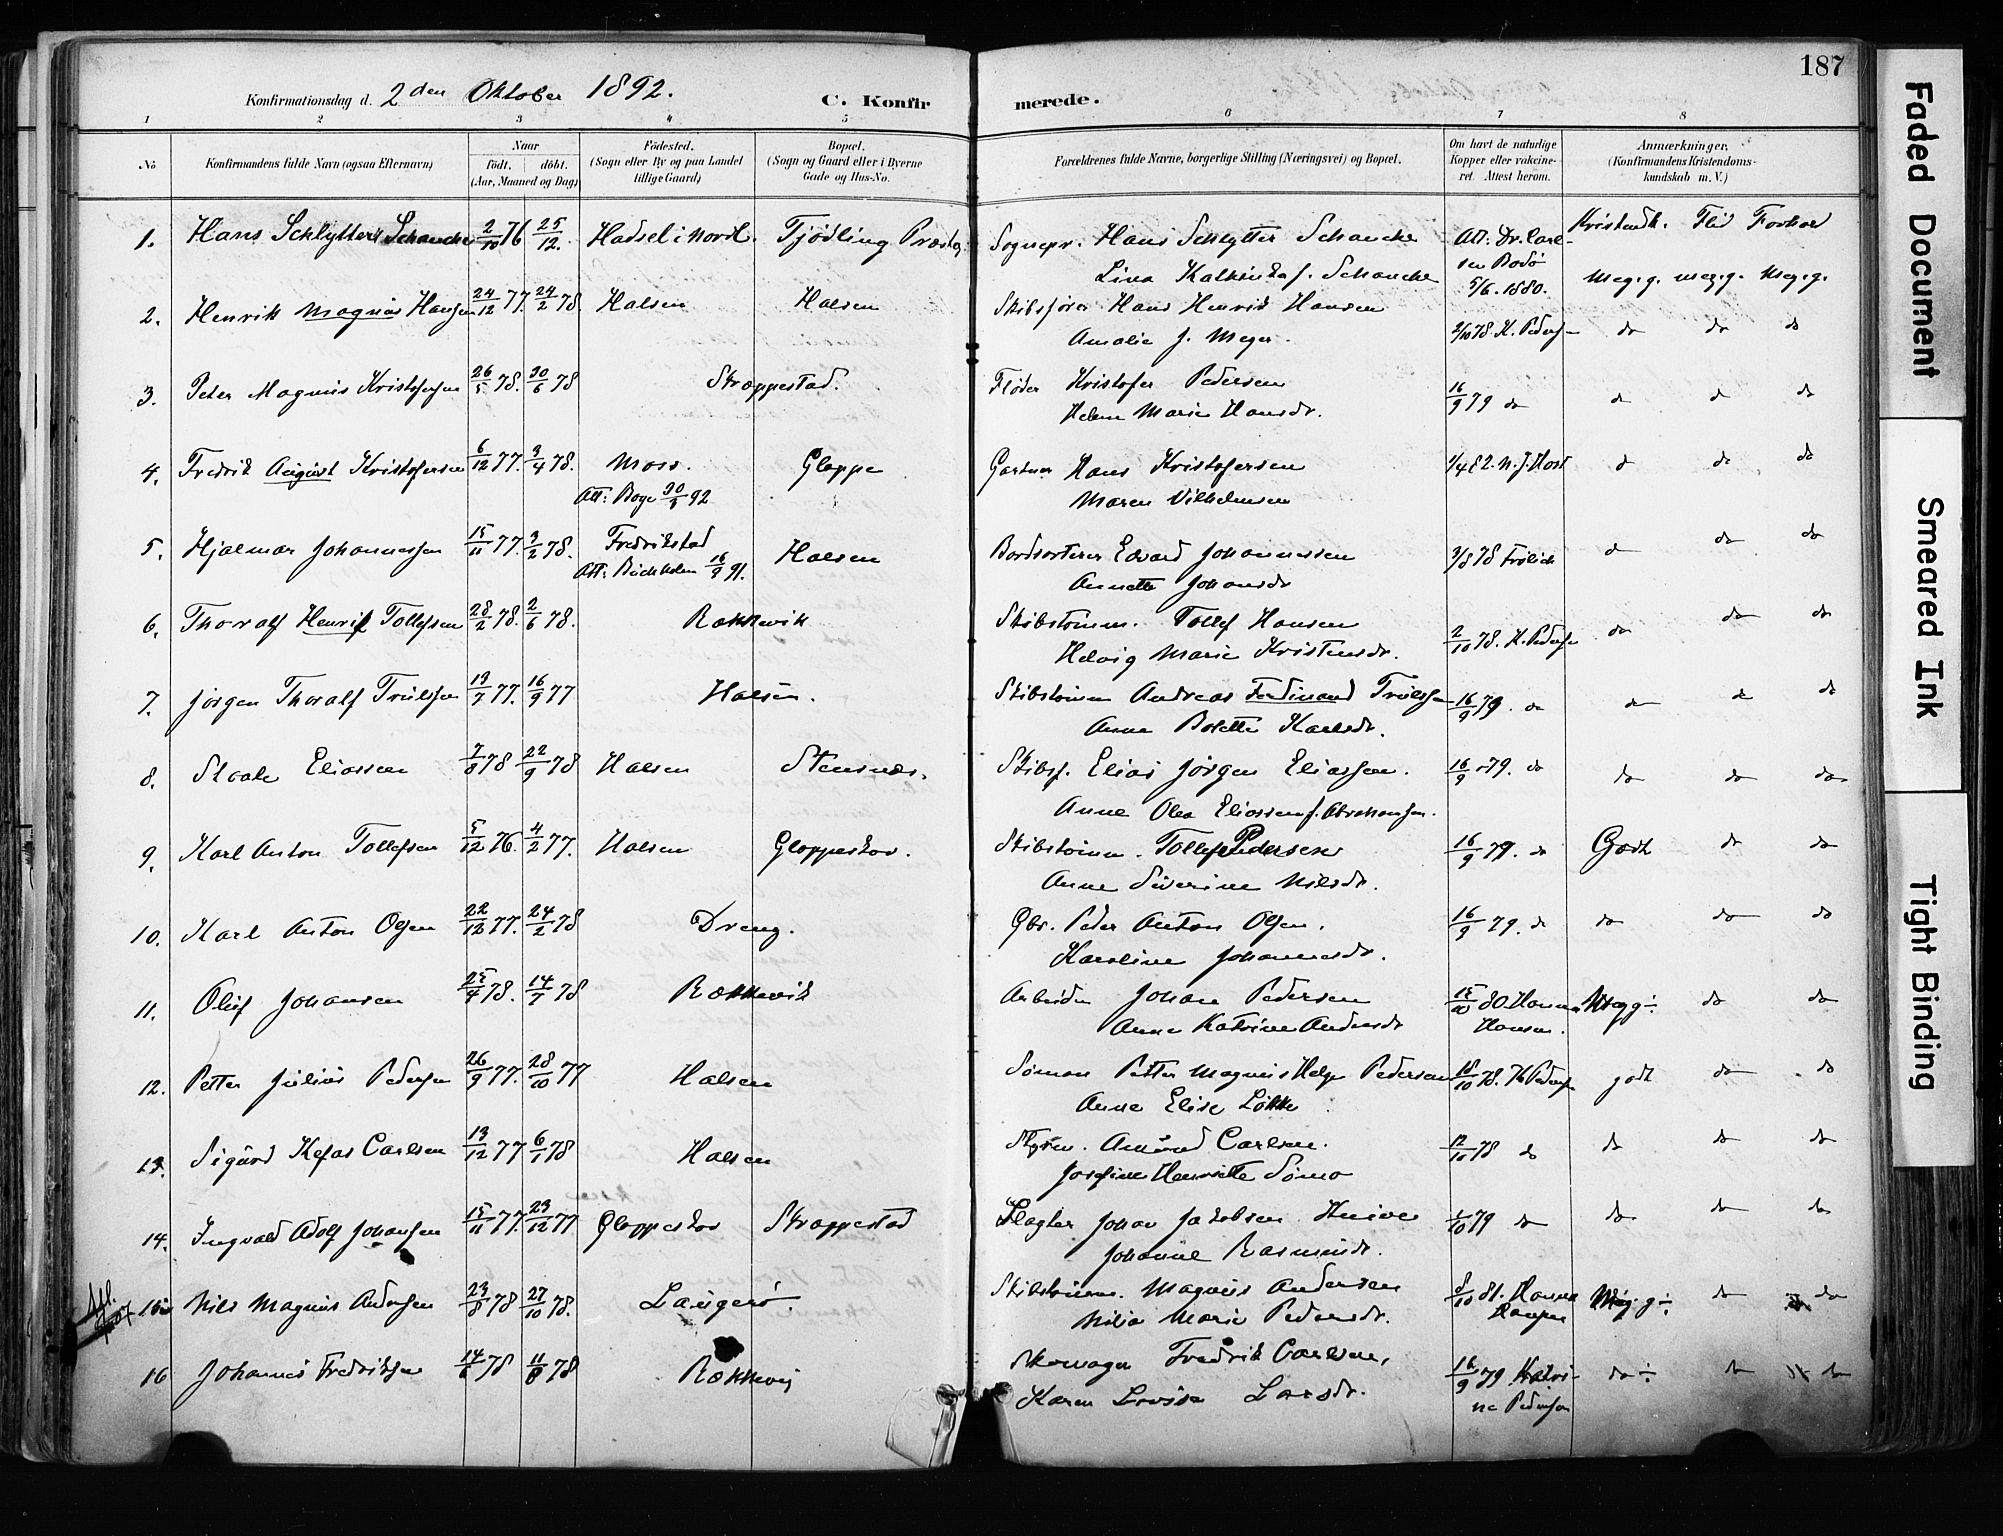 187
Konfirmationsdag d. 2den Oktober 1892. C. Konfirmerede.
1 2 3 4 5 6 7 8
No Konfirmandens fulde Navn (ogsaa Efternavn) Naar födt. döbt. (Aar, Maaned og Dag) Födested. (Sogn eller By og paa Landet tillige Gaard) Bopæl. (Sogn og Gaard eller i Byerne Gade og Hus-No. Forældrenes fulde Navne, borgerlige Stilling (Næringsvei) og Bopæl. Om havt de naturlige Kopper eller vakcineret. Attest herom. Anmærkninger. (Konfirmandens Kristendomskundskab m. V.)
Kristendk. Flid Forhold
1. Hans Schlytter Schancke 2/10 76 25/12. Hadsel i Nordl. Tjödling Præsteg. Sognepr. Hans Schlytter Schancke Att: Dr. Carl-
Lina Kathinka f. Schancke sen Bodö 5/6. 1880. Meg. g. meg. g. Meg. g.
2. Henrik Magnus Hansen 24/12 77. 24/2 78. Halsen Halsen Skibsfører Hans Henrik Hansen
Amalie f. Meyer. 2/10 78. K. Pedersen do do do
3. Peter Magnus Kristofersen 26/5 78. 30/6 78 Strøppestad. Fløder Kristofer Pedersen
Helene Marie Hansdr. 16/9 79 do do do do
4. Fredrik August Kristofersen 6/12 77. 3/4 78. Moss. Gloppe Gartner Hans Kristofersen 1/4 82. N. J. Horst do do do
Att: Boye 30/8 92 Maren Vilhelmsen
5. Hjalmar Johannessen 15/11 77. 3/2 78. Fredrikstad Halsen Bordsorterer Edvard Johannessen 3/8 78 Frölich do do do
Att: Buchholm 16/9 91. Annette Johansdr
6. Thoralf Henrik Tollefsen 28/2 78. 2/6 78. Rækkevik Skibstömm. Tollef Hansen
Hedvig Marie Kristensdr. 2/10 78. K. Pedersen do do do
7. Jörgen Thoralf Trulsen 19/7 77. 16/9 77 Halsen. Skibstömm Andreas Ferdinand Trulsen 16/9 79. do do do do
Anne Bolette Karlsdr.
8. Staale Eliassen 7/8 78 22/9 78 Halsen Stensnæs. Skibsf. Elias Jörgen Eliassen. 16/9 79. do do do do
Anne Olea Eliassen f. Abrahamsen.
9. Karl Anton Tollefsen 5/12 76. 4/2 77. Halsen Gloppeskov. Skibstömm. Tollef Pedersen 16/9 79. do Godt do do
Anne Severine Nilsdr.
10. Karl Anton Olsen 22/12 77. 24/2 78 Dreng. Gbr. Peder Anton Olsen. 16/9 79. do do do do
Karoline Johannesdr.
11. Oluf Johansen 25/4 78. 14/7 78 Rækkevik Arbeider Johan Pedersen 15/10 80 Hanna Hansen. Meg g ÷ do do
Anne Katrine Andersdr
12. Petter Julius Pedersen 26/9 77. 28/10 77 Halsen Sömand Petter Magnus Helge Pedersen 10/10 78. K Pedersen godt do do
Anne Elise Lökke
13. Sigurd Kefas Carlsen 13/12 77 6/1 78 Halsen Styrm. Amund Carlsen. 12/10 78 do do do do
Josefine Henriette Sömo
14. Ingvald Adolf Johansen 15/11 77. 23/12 77 Gloppeskov Strøppestad Slagter Johan Jakobsen 1/10 79 do do do do
Johanne Rasmusdr.
15 Nils Magnus Andersen 23/8 78 27/10 78. Langerö. Skibstömm. Magnus Andersen 8/10 81. Hanna Hansen Meg. g ÷ do do
Nilia Marie Pedersdr.
16 Johannes Fredriksen 14/6 78 11/8 78 Rækkevej Skomager Fredrik Carlsen, 16/9 79 Katri- do ÷ do do
Karen Lovise Larsdr. ne Pedersen
Faded Document
Smeared Ink
Tight Binding